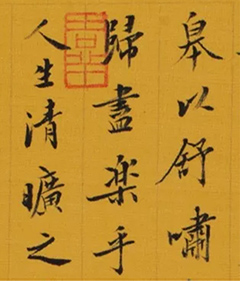 皋以舒嘯
歸盡楽乎
人生清曠之